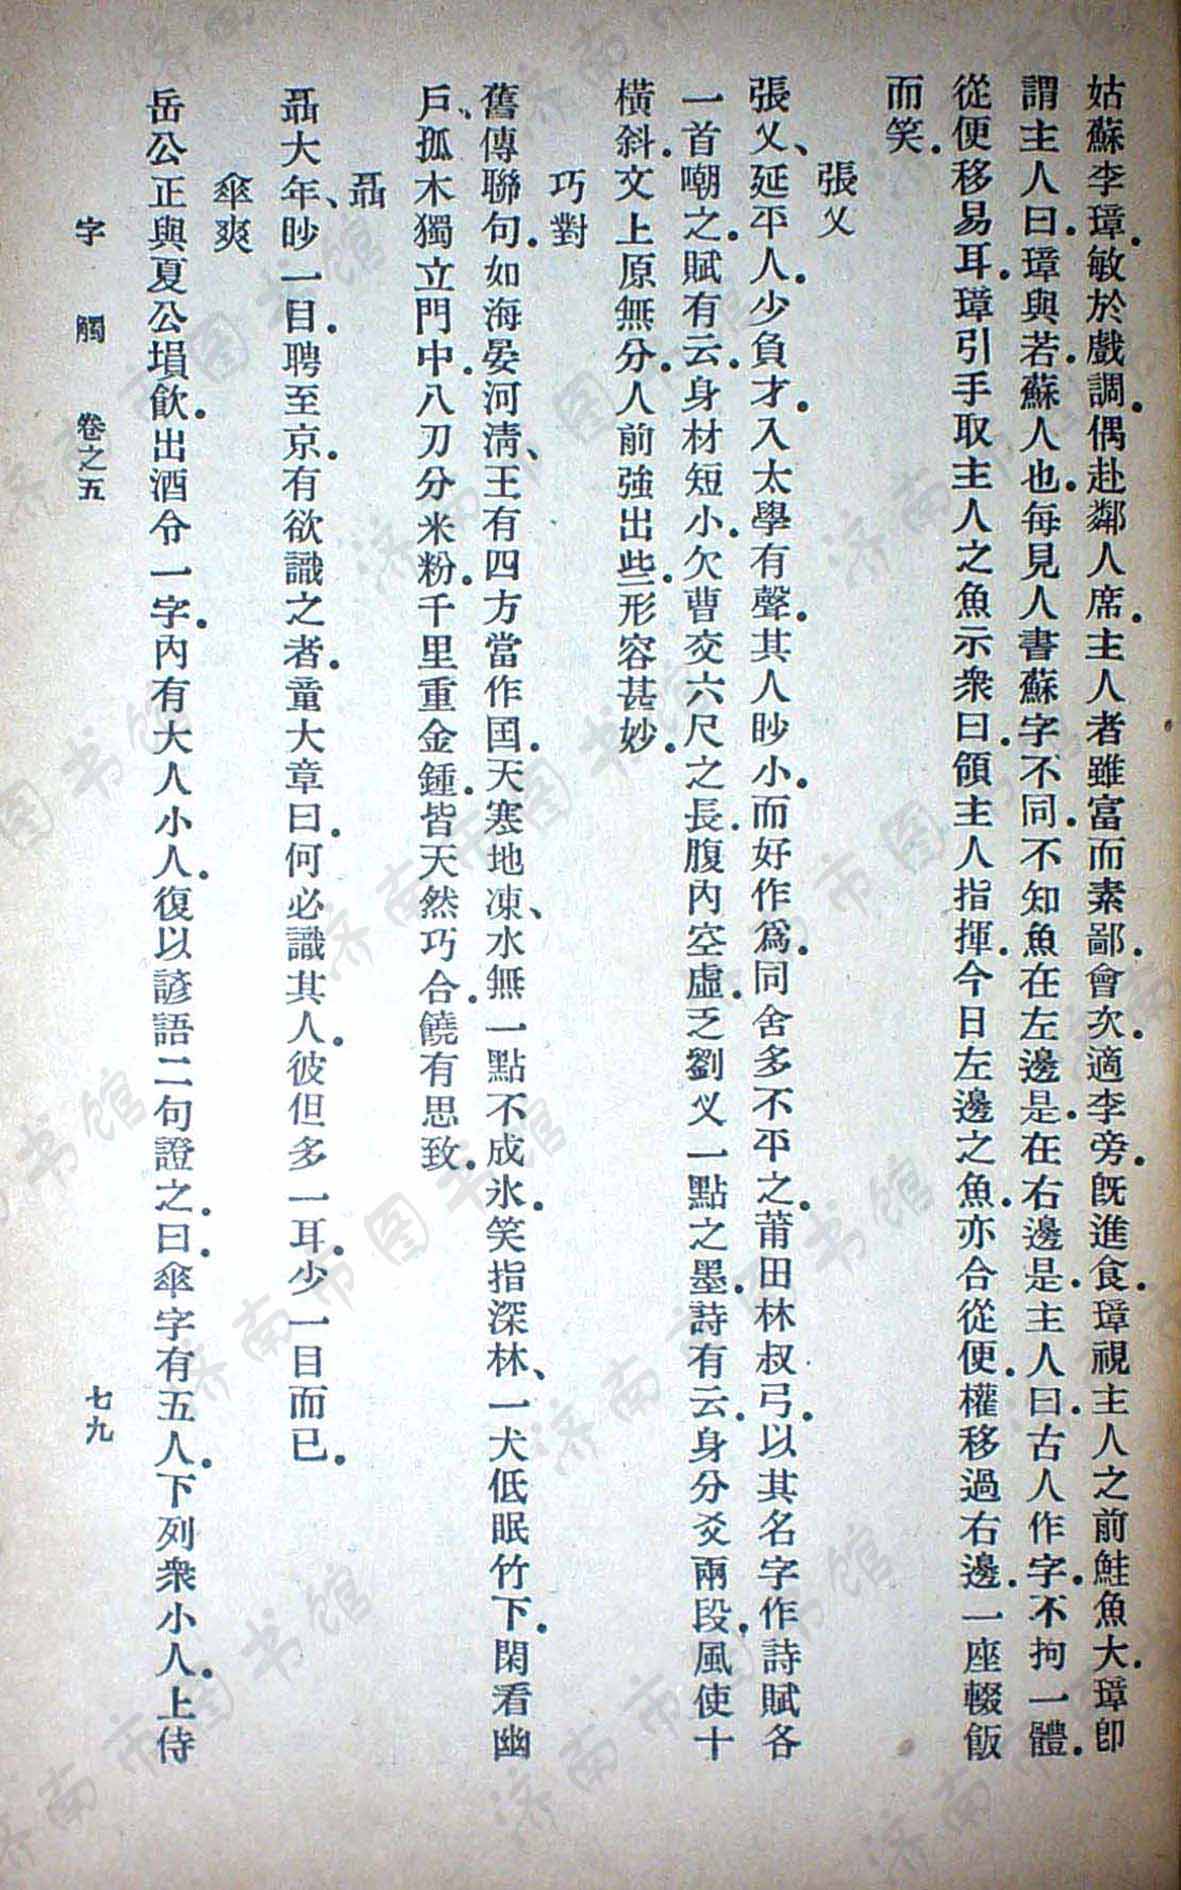 姑蘇李璋。敏於戲調。偶赴鄰人席。主人者雖富而素鄙。會次。適李旁。旣進食。璋視主人之前鮭魚大。璋卽
謂主人曰。璋與若。蘇人也。每見人書蘇字不同。不知魚在左邊是。在右邊是。主人曰。古人作字。不拘一體。
從便移易耳。璋引手取主人之魚示衆曰。領主人指揮。今日左邊之魚。亦合從便。權移過右邊。一座輟飯
而笑。
張乂
張乂、延平人。少負才。入太學有聲。其人眇小。而好作爲。同舍多不平之。莆田林叔弓。以其名字作詩賦各
一首嘲之。賦有云。身材短小。欠曹交六尺之長。腹內空虛。乏劉乂一點之墨。詩有云。身分爻兩段。風使十
橫斜。文上原無分。人前強出些。形容甚妙。
巧對
舊傳聯句。如海晏河淸、王有四方當作囯。天寒地凍、水無一點不成氷。笑指深林、一犬低眠竹下。閑看幽
戶、孤木獨立門中。八刀分米粉。千里重金鍾。皆天然巧合。饒有思致。
聶
聶大年、眇一目。聘至京。有欲識之者。童大章曰。何必識其人。彼但多一耳。少一目而已。
傘爽
岳公正與夏公塤飮。出酒令一字。內有大人小人。復以諺語二句證之。曰。傘字有五人。下列衆小人。上侍
字觸 卷之五 七九
济南市图书馆